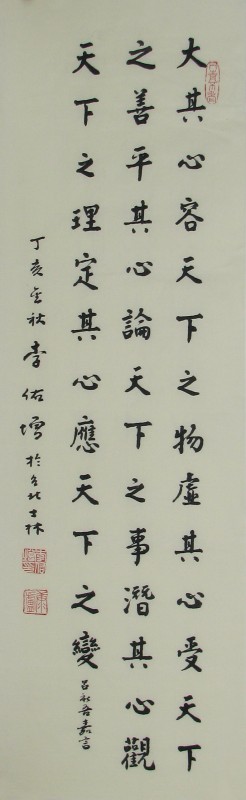 大其心容天下之物虛其心受天下
之善平其心論天下之事潛其心觀
天下之理定其心應天下之變
呂新吾嘉言
丁亥金秋李佑增於台北士林